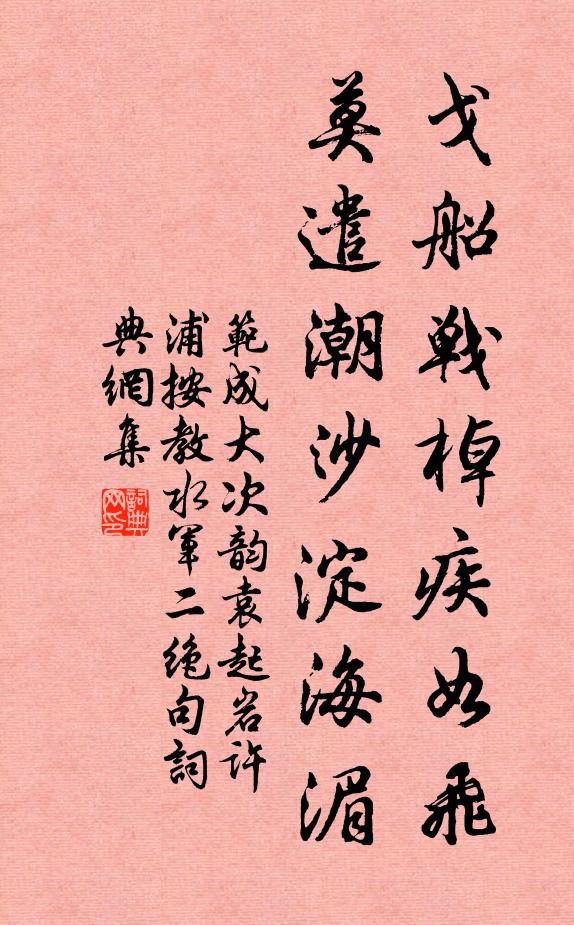 戈船戰棹疾如飛
莫遣潮沙淀海湄
範成大次韵袁起岩許
浦按教水軍二绝句詞
典網集
詞典
网印